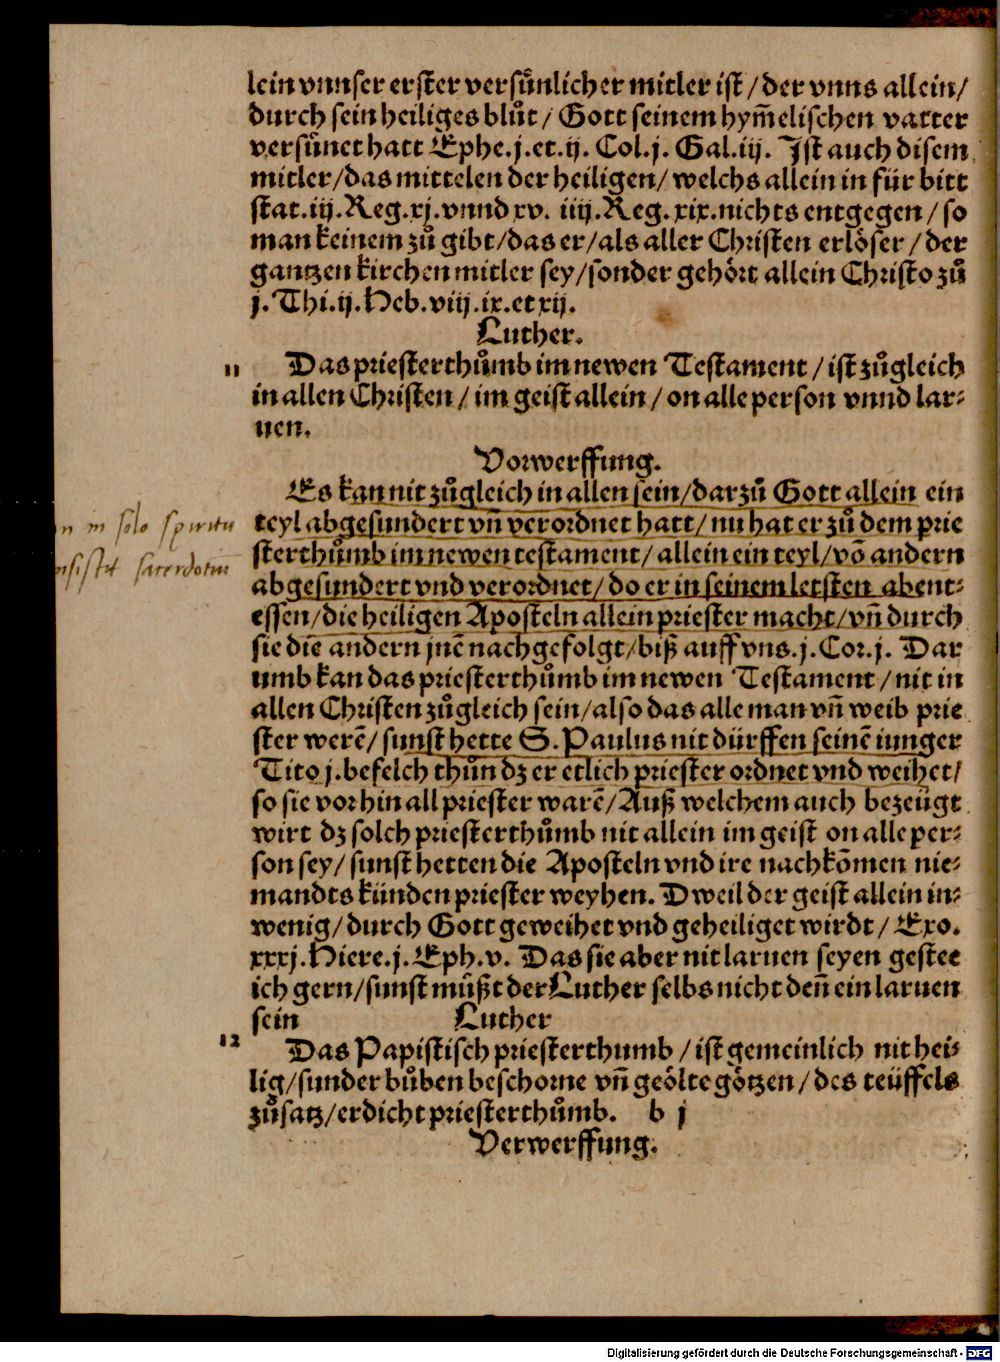 lein vnnser erster versůnlicher mitler ist / der vnns allein/
durch sein heiliges blůt / Gott seinem hym̃elischen vatter
versůnet hatt Ephe.j.et.ij. Col.j. Gal.iij. Ist auch disem
mitler/das mittelen der heiligen/ welchs allein in für bitt
stat.iij.Reg.xj.vnnd xv. iiij.Reg.xix.nichts entgegen / so
man keinem zů gibt/das er/als aller Christen erlöser / der
gantzen kirchen mitler sey/sonder gehört allein Christo zů
j.Thi.ij.Heb.viij.ix.et xij.
Luther.
11 Das priesterthůmb im newen Testament / ist zůgleich
in allen Christen / im geist allein / on alle person vnnd lar⸗
uen.
Vorwerffung.
Es kan nit zůgleich in allen sein/darzů Gott allein ein
teyl abgesundert vñ verordnet hatt/ nu hat er zů dem prie
sterthůmb im newen testament/ allein ein teyl/võ andern
abgesundert vnd verordnet/ do er in seinem letsten abent⸗
essen/die heiligen Aposteln allein priester macht/vñ durch
sie diẽ andern jnẽ nachgefolgt/biß auff vns.j.Cor.j. Dar
umb kan das priesterthůmb im newen Testament / nit in
allen Christen zůgleich sein/also das alle man vñ weib prie
ster werẽ/ sunst hette S.Paulus nit dürffen seinẽ iunger
Tito j.befelch thůn dz er etlich priester ordnet vnd weihet/
so sie vorhin all priester warẽ/Auß welchem auch bezeügt
wirt dz solch priesterthůmb nit allein im geist on alle per⸗
son sey/ sunst hetten die Aposteln vnd ire nachkõmen nie⸗
mandts künden priester weyhen. Dweil der geist allein in⸗
wenig/durch Gott geweihet vnd geheiliget wirdt / Exo.
xxxj.Hiere.j.Eph.v. Das sie aber nit laruen seyen gestee
ich gern/sunst můßt der Luther selbs nicht deñ ein laruen
sein Luther
12 Das Papistisch priesterthumb / ist gemeinlich nit hei⸗
lig/sunder bůben beschorne vñ geölte götzen / des teüffels
zůsatz/erdicht priesterthůmb. b j
Verwerffung.
in solo spiritu
sacerdotiũ
Digitalisierung gefördert durch die Deutsche Forschungsgemeinschaft - DFG